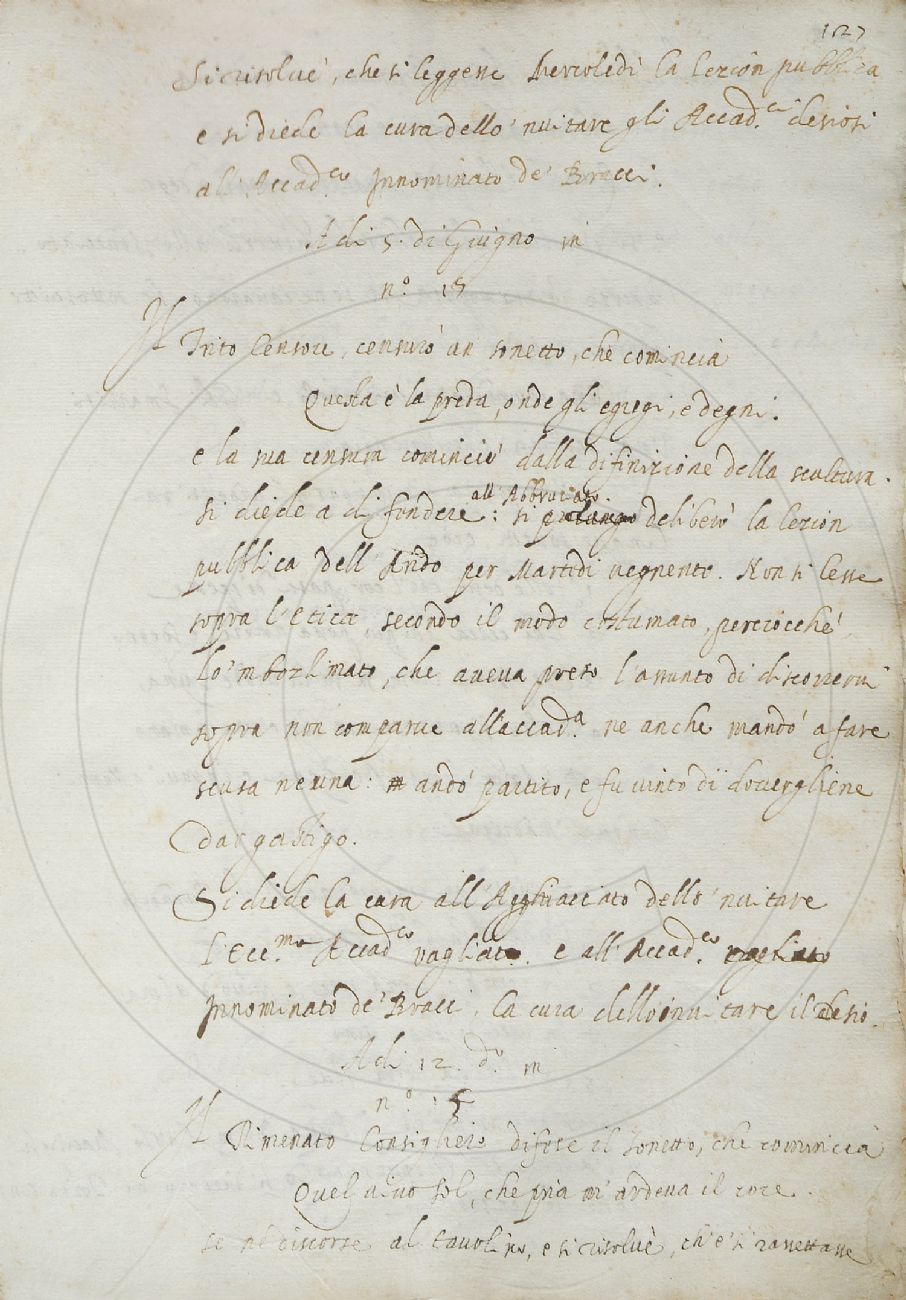 127
Si risolvè, che si leggesse Mercoledì la lezion pubblica
e si diede la cura dello 'nvitare gli Accad.ci desiosi
all'Accad.co Innominato de' Bracci.
Adi 5. di Giugno in
n.o 15
Il Trito Censore, censurò un sonetto, che comincia
Questa è la preda, onde gli egregi, e degni.
e la sua censura cominciò dalla difinizione della scultura.
si diede a difendere all'Abbruciato: si deliberò la lezion
pubblica dell'Arido per Martedì vegnente. Non si lesse
sopra l'etica secondo il modo costumato, perciocchè
lo 'mbozzimato, che aveva preso l'assunto di discorrervi
sopra non comparve all'accad.a ne anche mandò a fare
scusa neuna: andò partito, e fu vinto di dovergliene
dar gastigo.
Si diede la cura all'Agghiacciato dello 'nvitare
l'Ecc.mo Accad.co vagliato. e all'Accad.co
Innominato de' Bracci, la cura dello invitare il desio.
Adi 12. d.o in
n.o
Il Rimenato Consigliero difese il sonetto, che comincia
Quel vivo sol, che pria m'ardeva il core.
se ne discorse al tavolino, e si risolvè, che si rassettasse